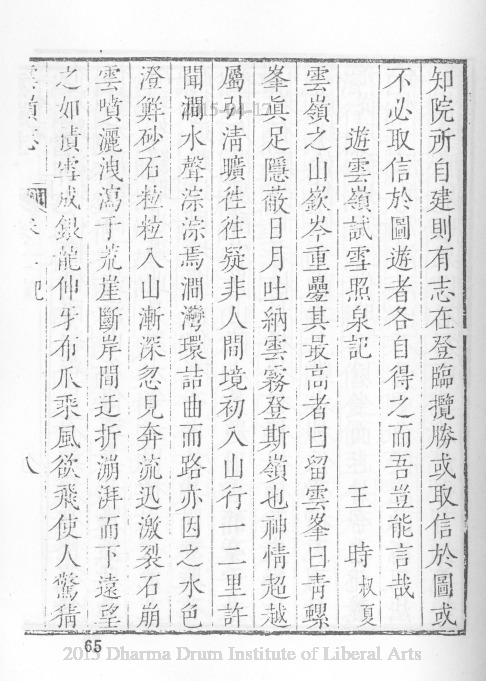 知院所自建則有志在登臨攬勝或取信於圖或
不必取信於圖遊者各自得之而吾豈能言哉
遊雲嶺試雪照泉記 王 時 叔夏
雲嶺之山嶔岑重疊其最高者曰留雲峯曰青螺
峯眞足隱蔽日月吐納雲霧登斯嶺也神情超越
屬引淸曠徃徃疑非人間境初入山行一二里許
聞澗水聲淙淙焉澗灣環詰曲而路亦因之水色
澄鮮砂石粒粒入山漸深忽見奔流迅激裂石崩
雲噴灑洩瀉于荒崖斷岸間迂折漰湃而下遠望
之如積雪成銀龍伸牙布爪乘風欲飛使人驚猜
八
65
2013 Dharma Drum Institute of Liberal Arts